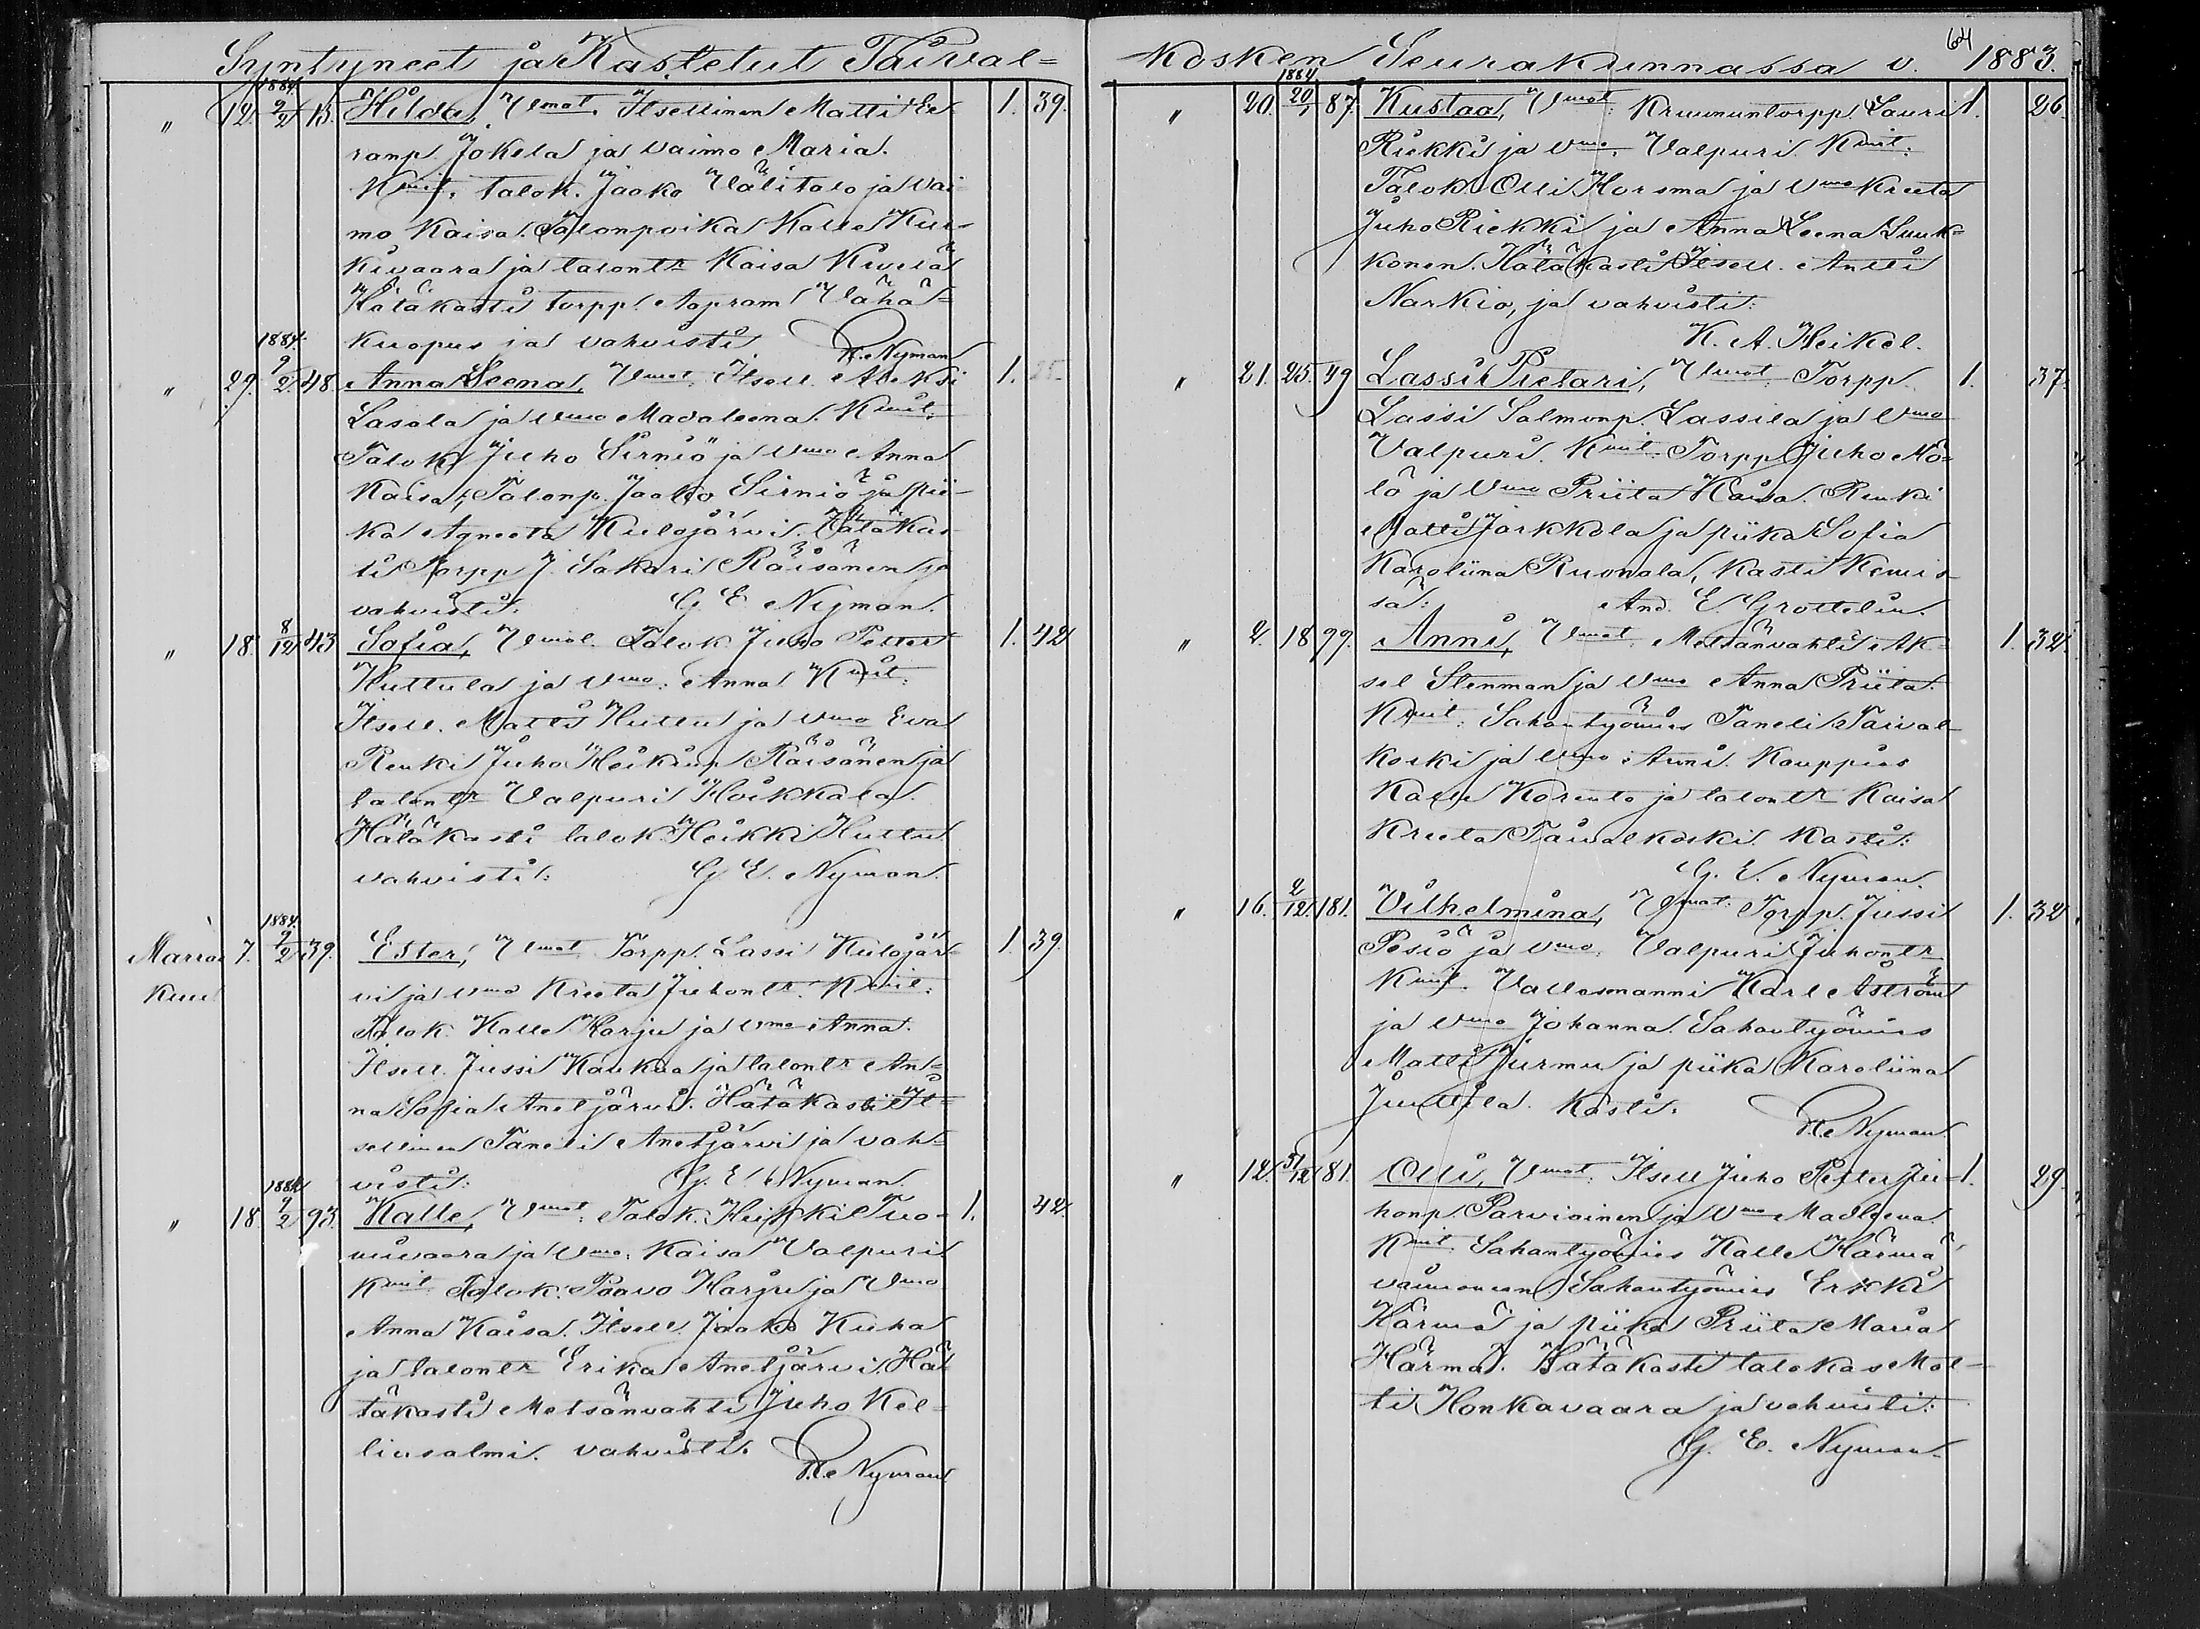 Syntyneet ja Kastetut Taival=
" 12. 1884 9/2 15. Hilda, Vmat. Itsellinen Matti Ee- 1. 39.
ranp. Jokela ja vaimo Maria.
Kmit. talok. Jaako Välitalo ja vai-
mo Kaisa. Talonpoika Kalle Kur-
kivaara ja talontr Kaisa Kivelä
Hätäkasti torpp. Aapram Vähä-
kuopus ja vahvisti Nyman
" 29. 1884. 9/2 48. Anna Leena, Vmat. Itsell. Aleksi 1.
Lasala ja Vmo Madaleena. Kmit.
Talok. Juho Sirniö ja Vmo Anna
Kaisa, Talonp. Jaako Sirniö ja pii-
ka Agneeta Kulojärvi. Hätäkas-
ti Torpp J. Sakari Räisänen ja
vahvisti: G E Nyman.
" 18. 8/12 43 Sofia, Vmat. Talok. Juho Petter 1. 42
Huttula ja Vmo. Anna Kmit:
Itsell. Matti Huttu ja Vmo Eva
Renki Juho Heikinp Räisänen ja
talontr Valpuri Hoikkala.
Hätäkasti talok. Heikki Huttu
vahvisti: G E. Nyman.
Marras 7. 1884. 9/2 39. Ester, Vmat Torpp. Lassi Kulojär- 1. 39.
kuu vi ja Vmo Kreeta Juhontr. Kmit:
Talok. Kalle Karju ja Vmo Anna.
Itsell. Jussi Kaukaa ja talontr An-
na Sofia Anetjärvi. Hätäkasti It-
sellinen Taneli Anetjärvi ja vah-
visti: G. E. Nyman
" 18. 1884 9/2 93. Kalle, Vmat: Talok. Heikki Tuo- 1. 42.
mivaara ja Vmo. Kaisa Valpuri
Kmit. Talok. Paavo Harju ja Vmo
Anna Kaisa. Itsell. Jaako Kuha
ja talontr Erika Anetjärvi. Hä-
täkasti Metsänvahti Juho Kel-
liusalmi. vahvisti. Nyman
kosken Seurakunnassa v. 64 1883.
" 20. 1884 20/1 87. Kustaa, Vmat: Kruununtorpp. Lauri 1. 26.
Riekki ja Vmo. Valpuri. Kmit:
Talok. Olli Horsma ja Vmo Kreeta
Juho Riekki ja Anna Leena Luuk-
konen. Hätäkasti Itsell. Antti
Narkio, ja vahvisti:
K. A. Heikel.
" 21. 25. 49 Lassi Pietari, Vmat. Torpp. 1. 37.
Lassi Salmonp. Lassila ja Vmo
Valpuri. Kmit. Torpp. Juho Mö-
lö ja Vmo Priita Kaisa. Renki
Matti Jarkkola ja piika Sofia
Karoliina Ruonala, kasti Kemis-
sä: And. E. Grottelin.
" 2. 18 99. Anni, Vmat. Metsänvahti Ak- 1. 32.
sel Stenman ja Vmo Anna Priita.
Kmit: Sahantyömies Taneli Taival-
koski ja Vmo Anni. Kauppias
Kalle Korento ja talontr Kaisa
Kreeta Taivalkoski. Kasti:
G. E. Nyman.
" 16. 2/12. 181. Vilhelmina, Vmat. Torpp. Jussi 1. 32.
Posio ja Vmo. Valpuri Juhontr
Kmit. Vallesmanni Karl Aström
ja Vmo Johanna. Sahantyömies
Matti Jurmu ja piika Karoliina
Juttila. Kasti. Nyman.
" 12. 31/12 81. Olli, Vmat: Itsell Juho Petter Ju- 1. 29.
honp. Parviainen ja Vmo Madleena.
Kmit. Sahantyömies Kalle Härmä
vaimoneen Sahantyömies Erkki
Härmä ja piika Priita Maria
Härmä. Hätäkasti talokas Mat-
ti Honkavaara ja vahvisti:
G. E. Nyman